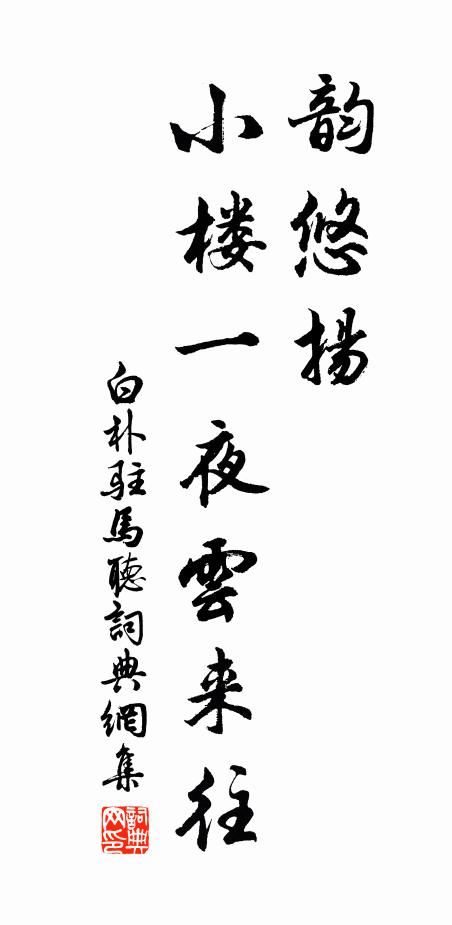 韵悠揚
小楼一夜雲来往
白朴駐馬聽詞典網集
詞典
网印